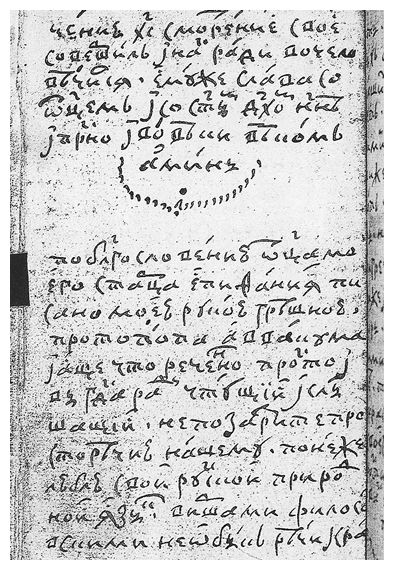 смотрение свое
ради вочело
вѣчися. емуже слава со
ѿцемъ і со ст҃ы дх҃о нн҃ѣ
і прⷭ҇но і во вѣки вѣкомъ
аминь
по блг҃ословению ѿца мо
его старца епифания пи
сано моею рукою грѣшною,
протопопа аввакума
і аще что речено просто і
вы гдⷭ҇а ради чтущии і слы
шащии. не позазрите про
сторѣчию нашему. понеже
люблю свои руской природ
ной языкъ. виршами филосо
вскими не ѡбыкъ рѣчи кра